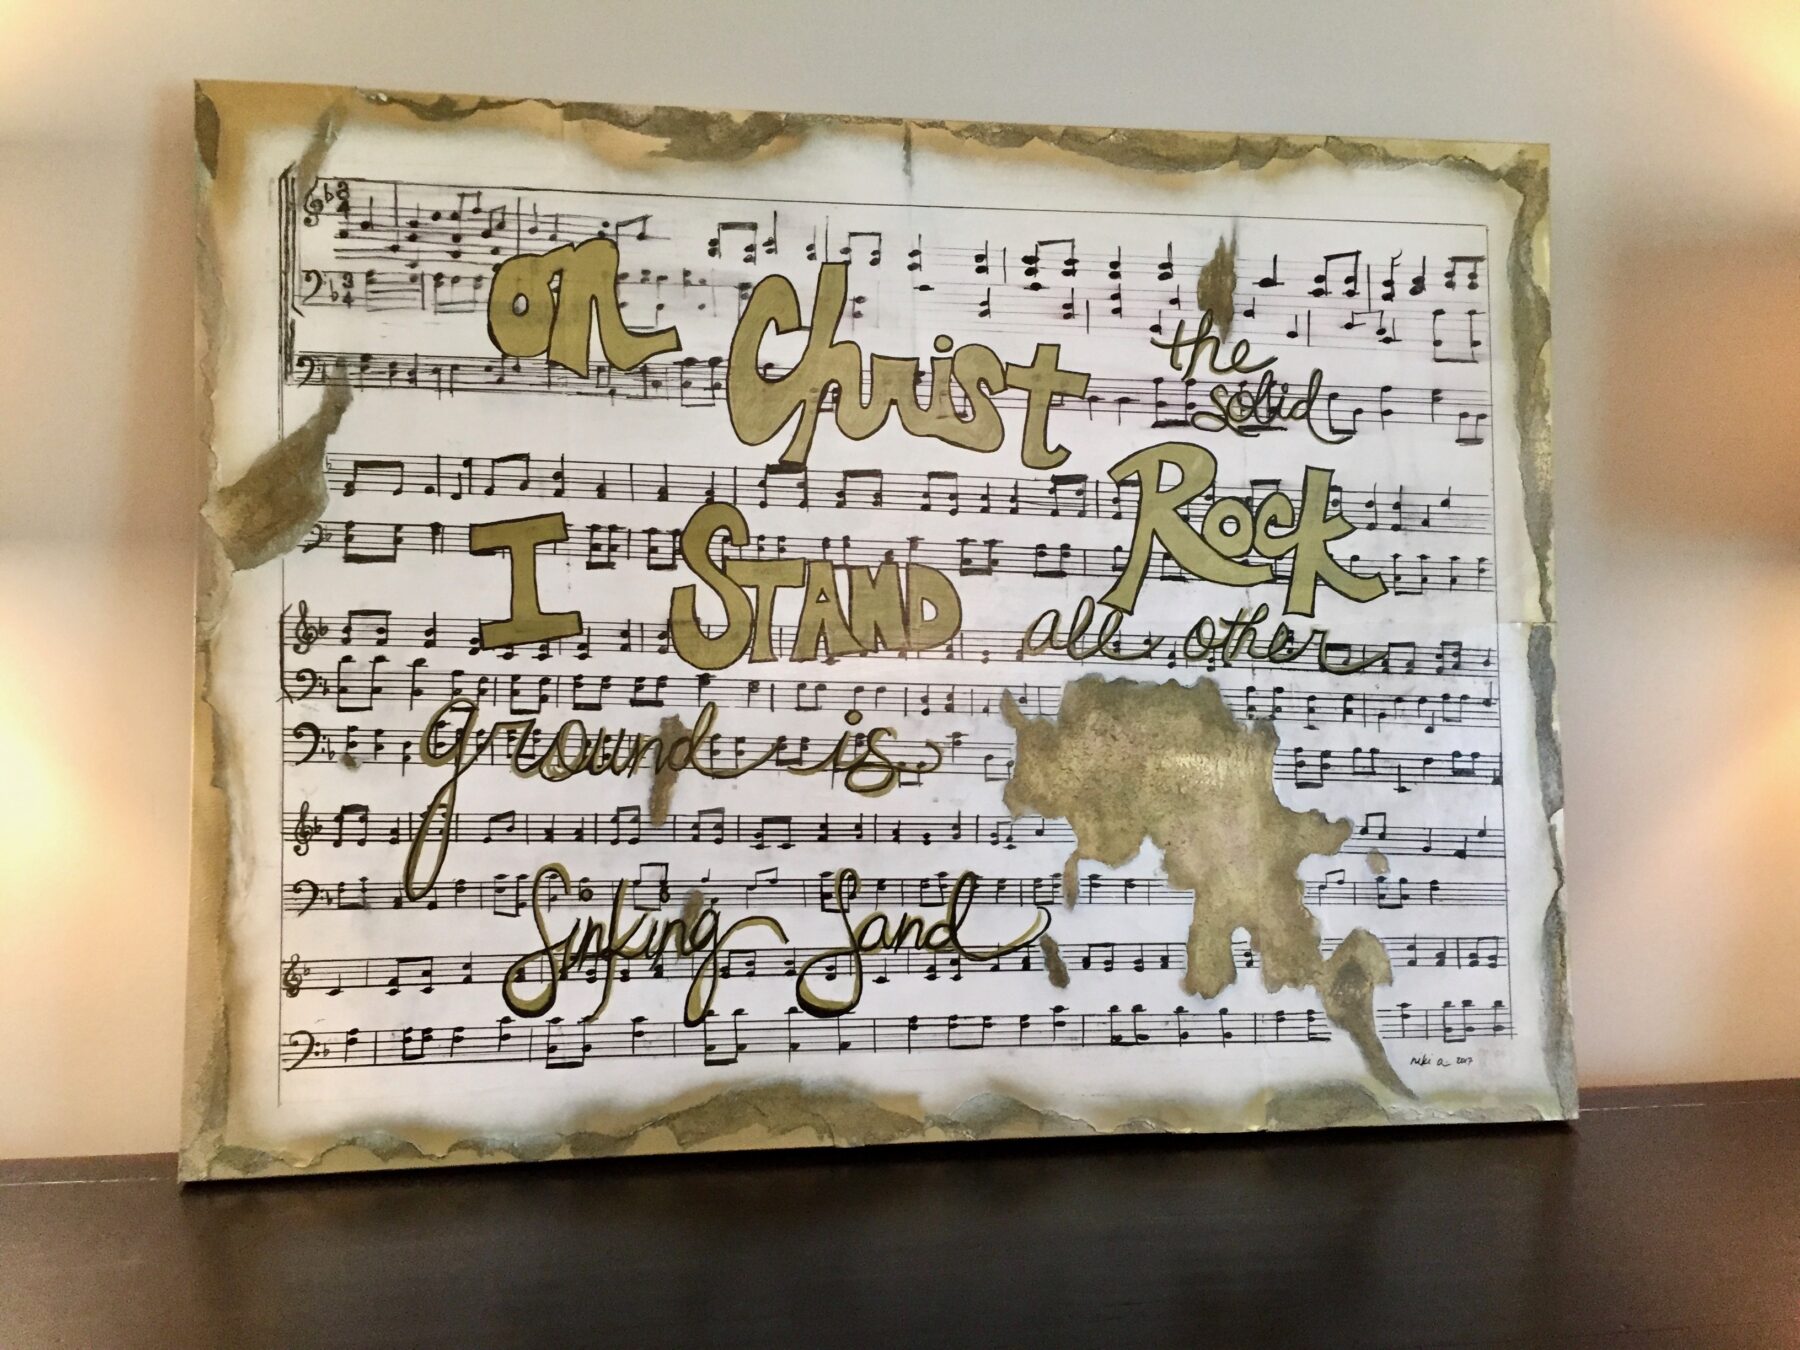 on Christ the
solid
Rock
I STAND all other
ground is
Sinking Sand
niki a. 2017